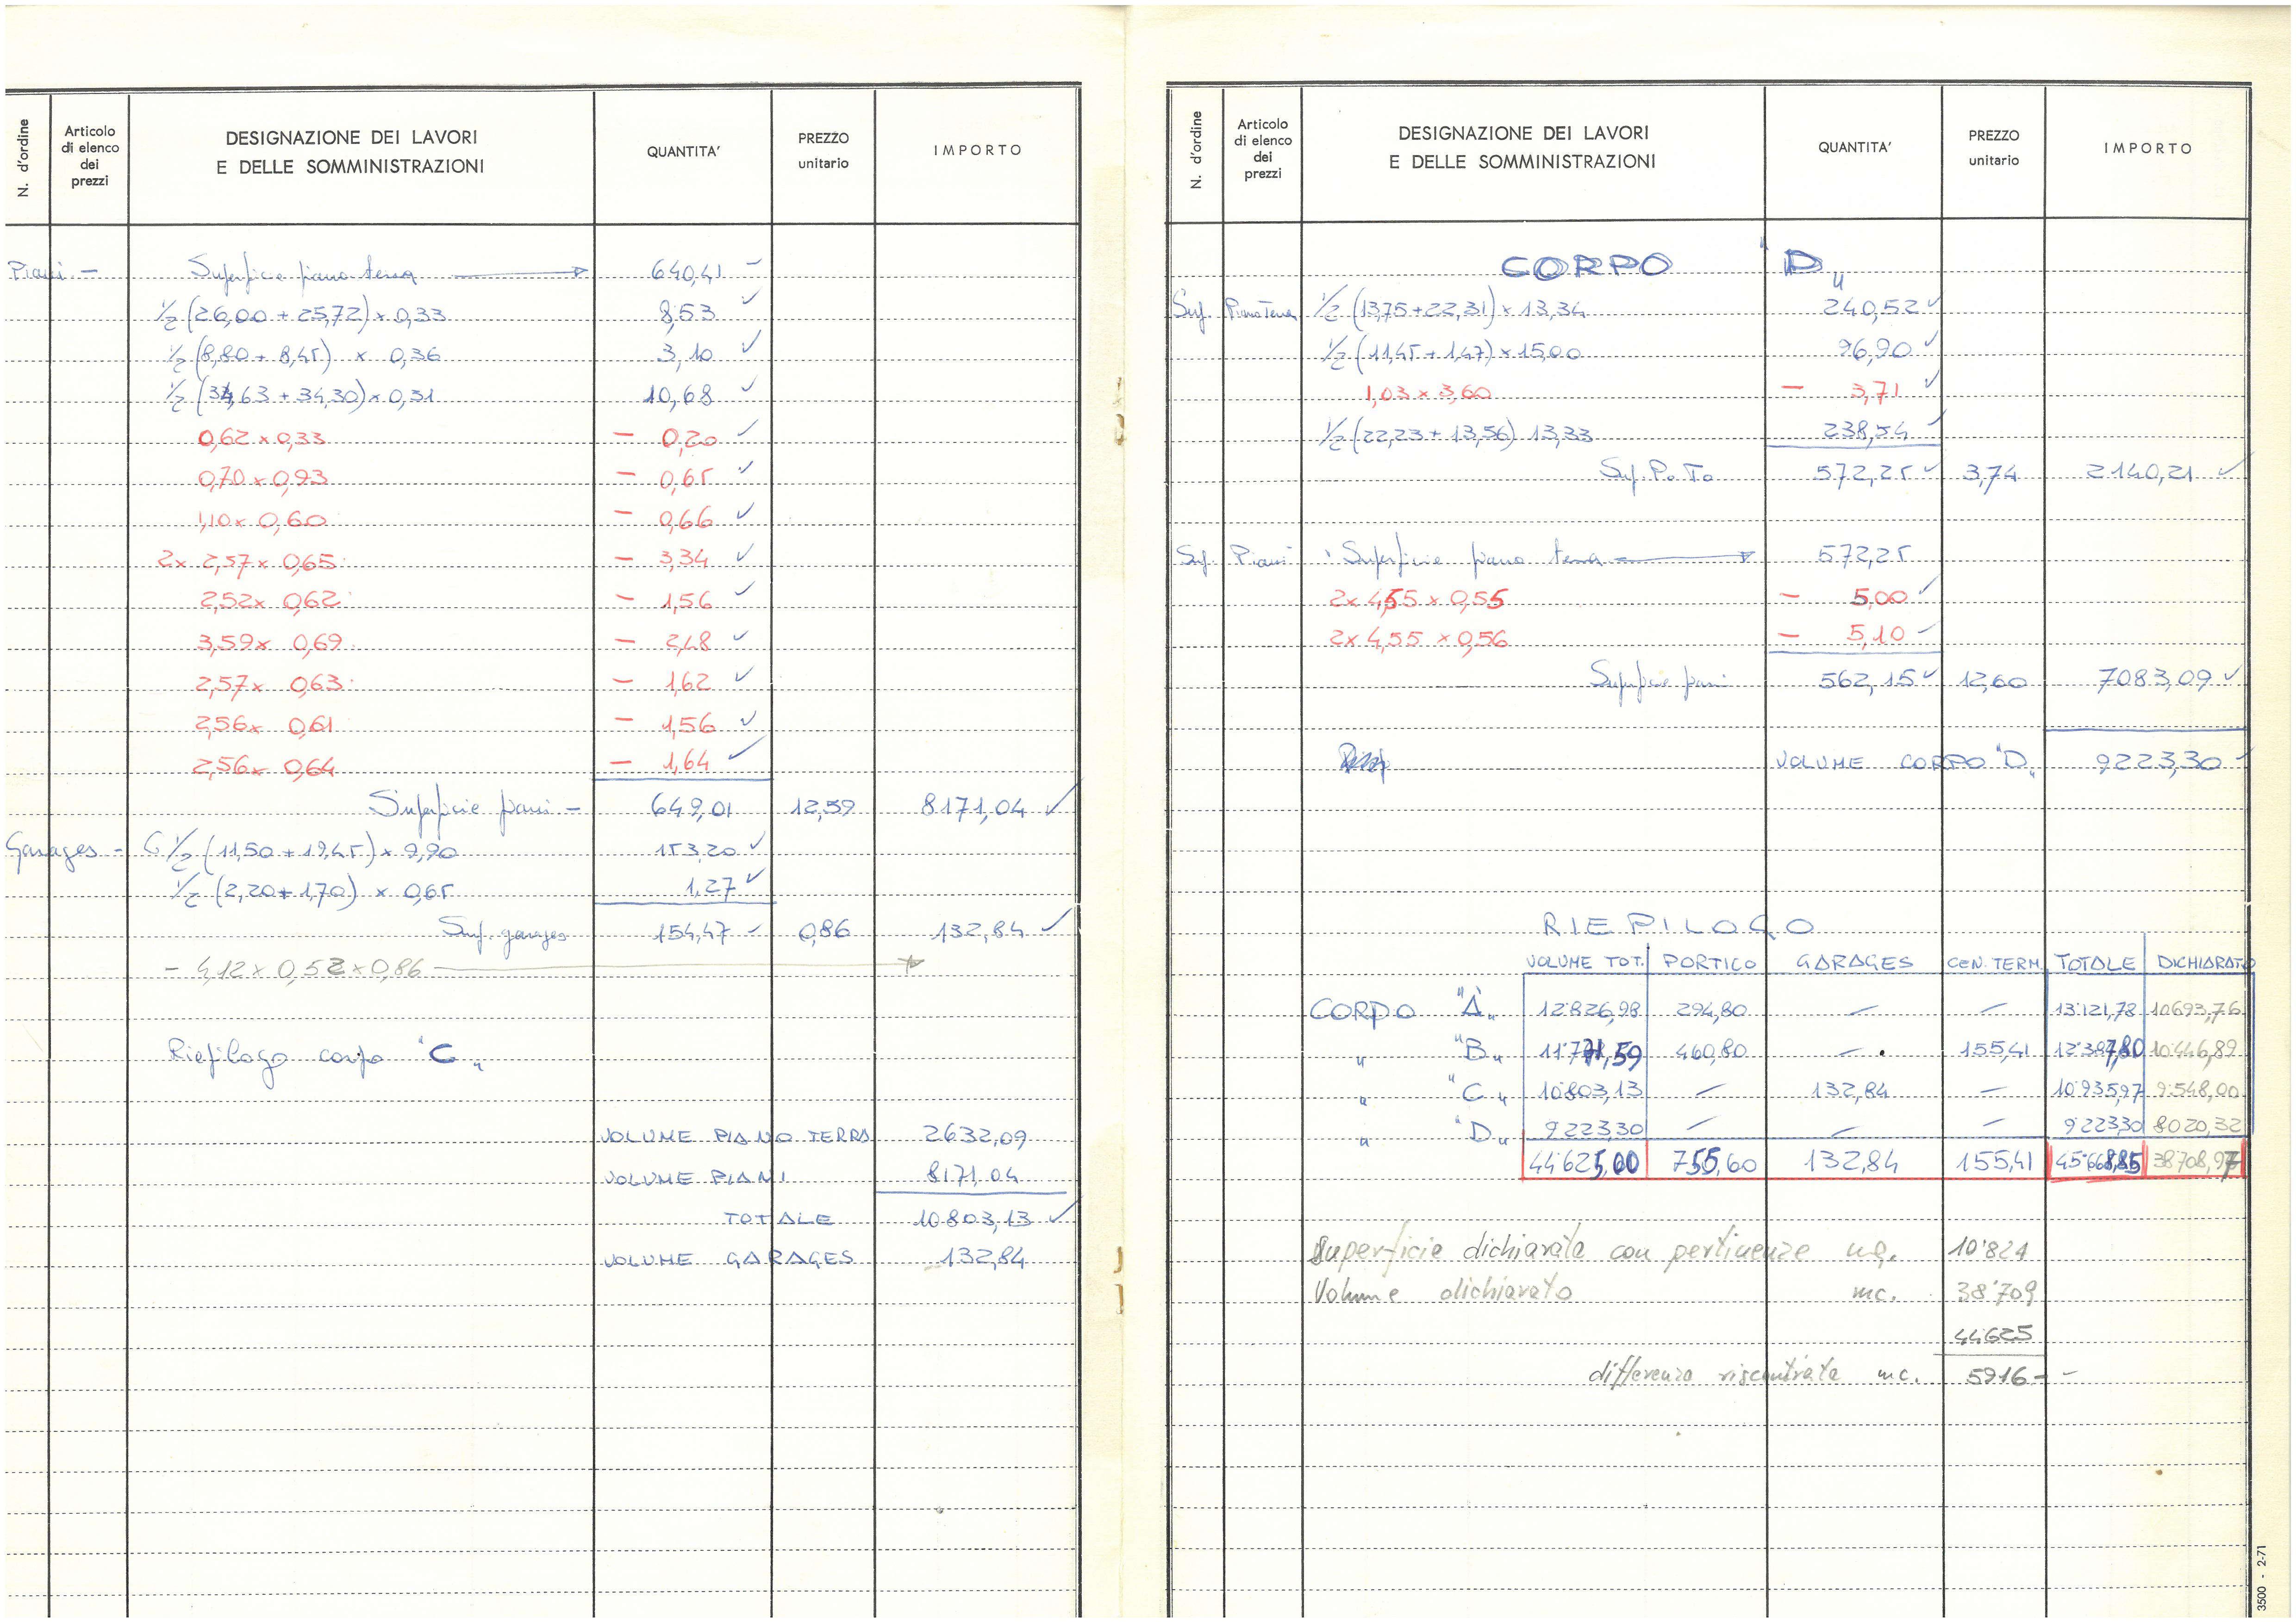 N. d'ordine
Articolo di elenco dei prezzi
DESIGNAZIONE DEI LAVORI E DELLE SOMMINISTRAZIONI
QUANTITA'
PREZZO unitario
IMPORTO
Piani - Superficie piano terra 640,41 -
1/2 (26,00 + 25,72) x 0,33 8,53 ✓
1/2 (8,80 + 8,45) x 0,36 3,10 ✓
1/2 (34,63 + 34,30) x 0,31 10,68 ✓
0,62 x 0,33 - 0,20 ✓
0,70 x 0,93 - 0,65 ✓
1,10 x 0,60 - 0,66 ✓
2x 2,57 x 0,65 - 3,34 ✓
2,52 x 0,62 - 1,56 ✓
3,59 x 0,69 - 2,48 ✓
2,57 x 0,63 - 1,62 ✓
2,56 x 0,61 - 1,56 ✓
2,56 x 0,64 - 1,64 ✓
Superficie piani - 649,01 12,59 8171,04 ✓
Garages - 1/2 (11,50 + 19,45) x 9,90 153,20 ✓
1/2 (2,20 + 1,70) x 0,65 1,27 ✓
Sup. garages 154,47 - 0,86 132,84 ✓
- 4,12 x 0,52 x 0,86
Riepilogo corpo "C"
VOLUME PIANO TERRA 2632,09
VOLUME PIANI 8171,04
TOTALE 10803,13 ✓
VOLUME GARAGES 132,84
N. d'ordine
Articolo di elenco dei prezzi
DESIGNAZIONE DEI LAVORI E DELLE SOMMINISTRAZIONI
QUANTITA'
PREZZO unitario
IMPORTO
CORPO "D"
Sup. Piano Terra 1/2 (13,75 + 22,31) x 13,34 240,52 ✓
1/2 (11,45 + 1,47) x 15,00 96,90 ✓
1,03 x 3,60 - 3,71 ✓
1/2 (22,23 + 13,56) 13,33 238,54 ✓
Sup. Po To 572,25 ✓ 3,74 2140,21 ✓
Sup. Piani Superficie piano terra 572,25
2x 4,55 x 0,55 - 5,00 ✓
2x 4,55 x 0,56 - 5,10 -
Superficie piani 562,15 ✓ 12,60 7083,09 ✓
VOLUME CORPO "D" 9223,30 -
RIEPILOGO
VOLUME TOT. PORTICO GARAGES CEN. TERM. TOTALE DICHIARATO
CORPO "A" 12'826,98 294,80 - - 13'121,78 10693,76
" "B" 11'771,59 460,80 - 155,41 12'387,80 10'446,89
" "C" 10'803,13 - 132,84 - 10'935,97 9'548,00
" "D" 9223,30 - - - 9223,30 8020,32
44'625,00 755,60 132,84 155,41 45'668,85 38'708,97
Superficie dichiarata con pertinenze mq. 10'824
Volume dichiarato mc. 38'709
44'625
differenza riscontrata mc. 5916 - -
3500 - 2-71